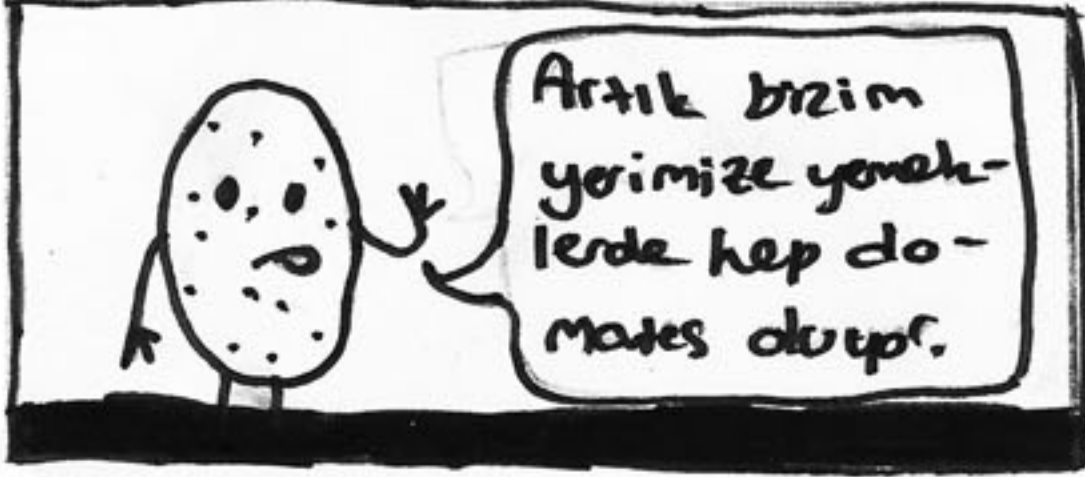 Artık bizim
yerimize yemek-
lerde hep do-
mates oluyor.